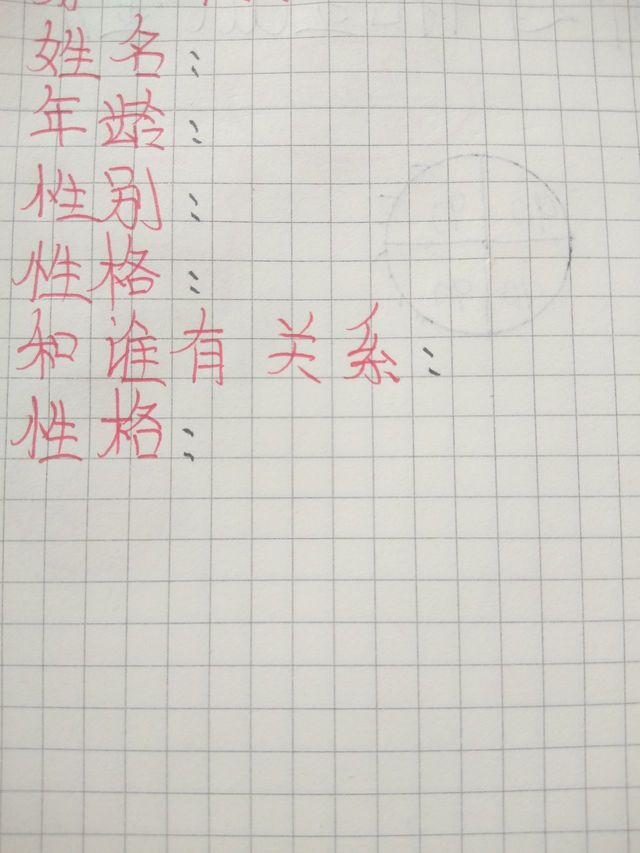 姓名：
年龄：
性别：
性格：
和谁有关系：
性格：